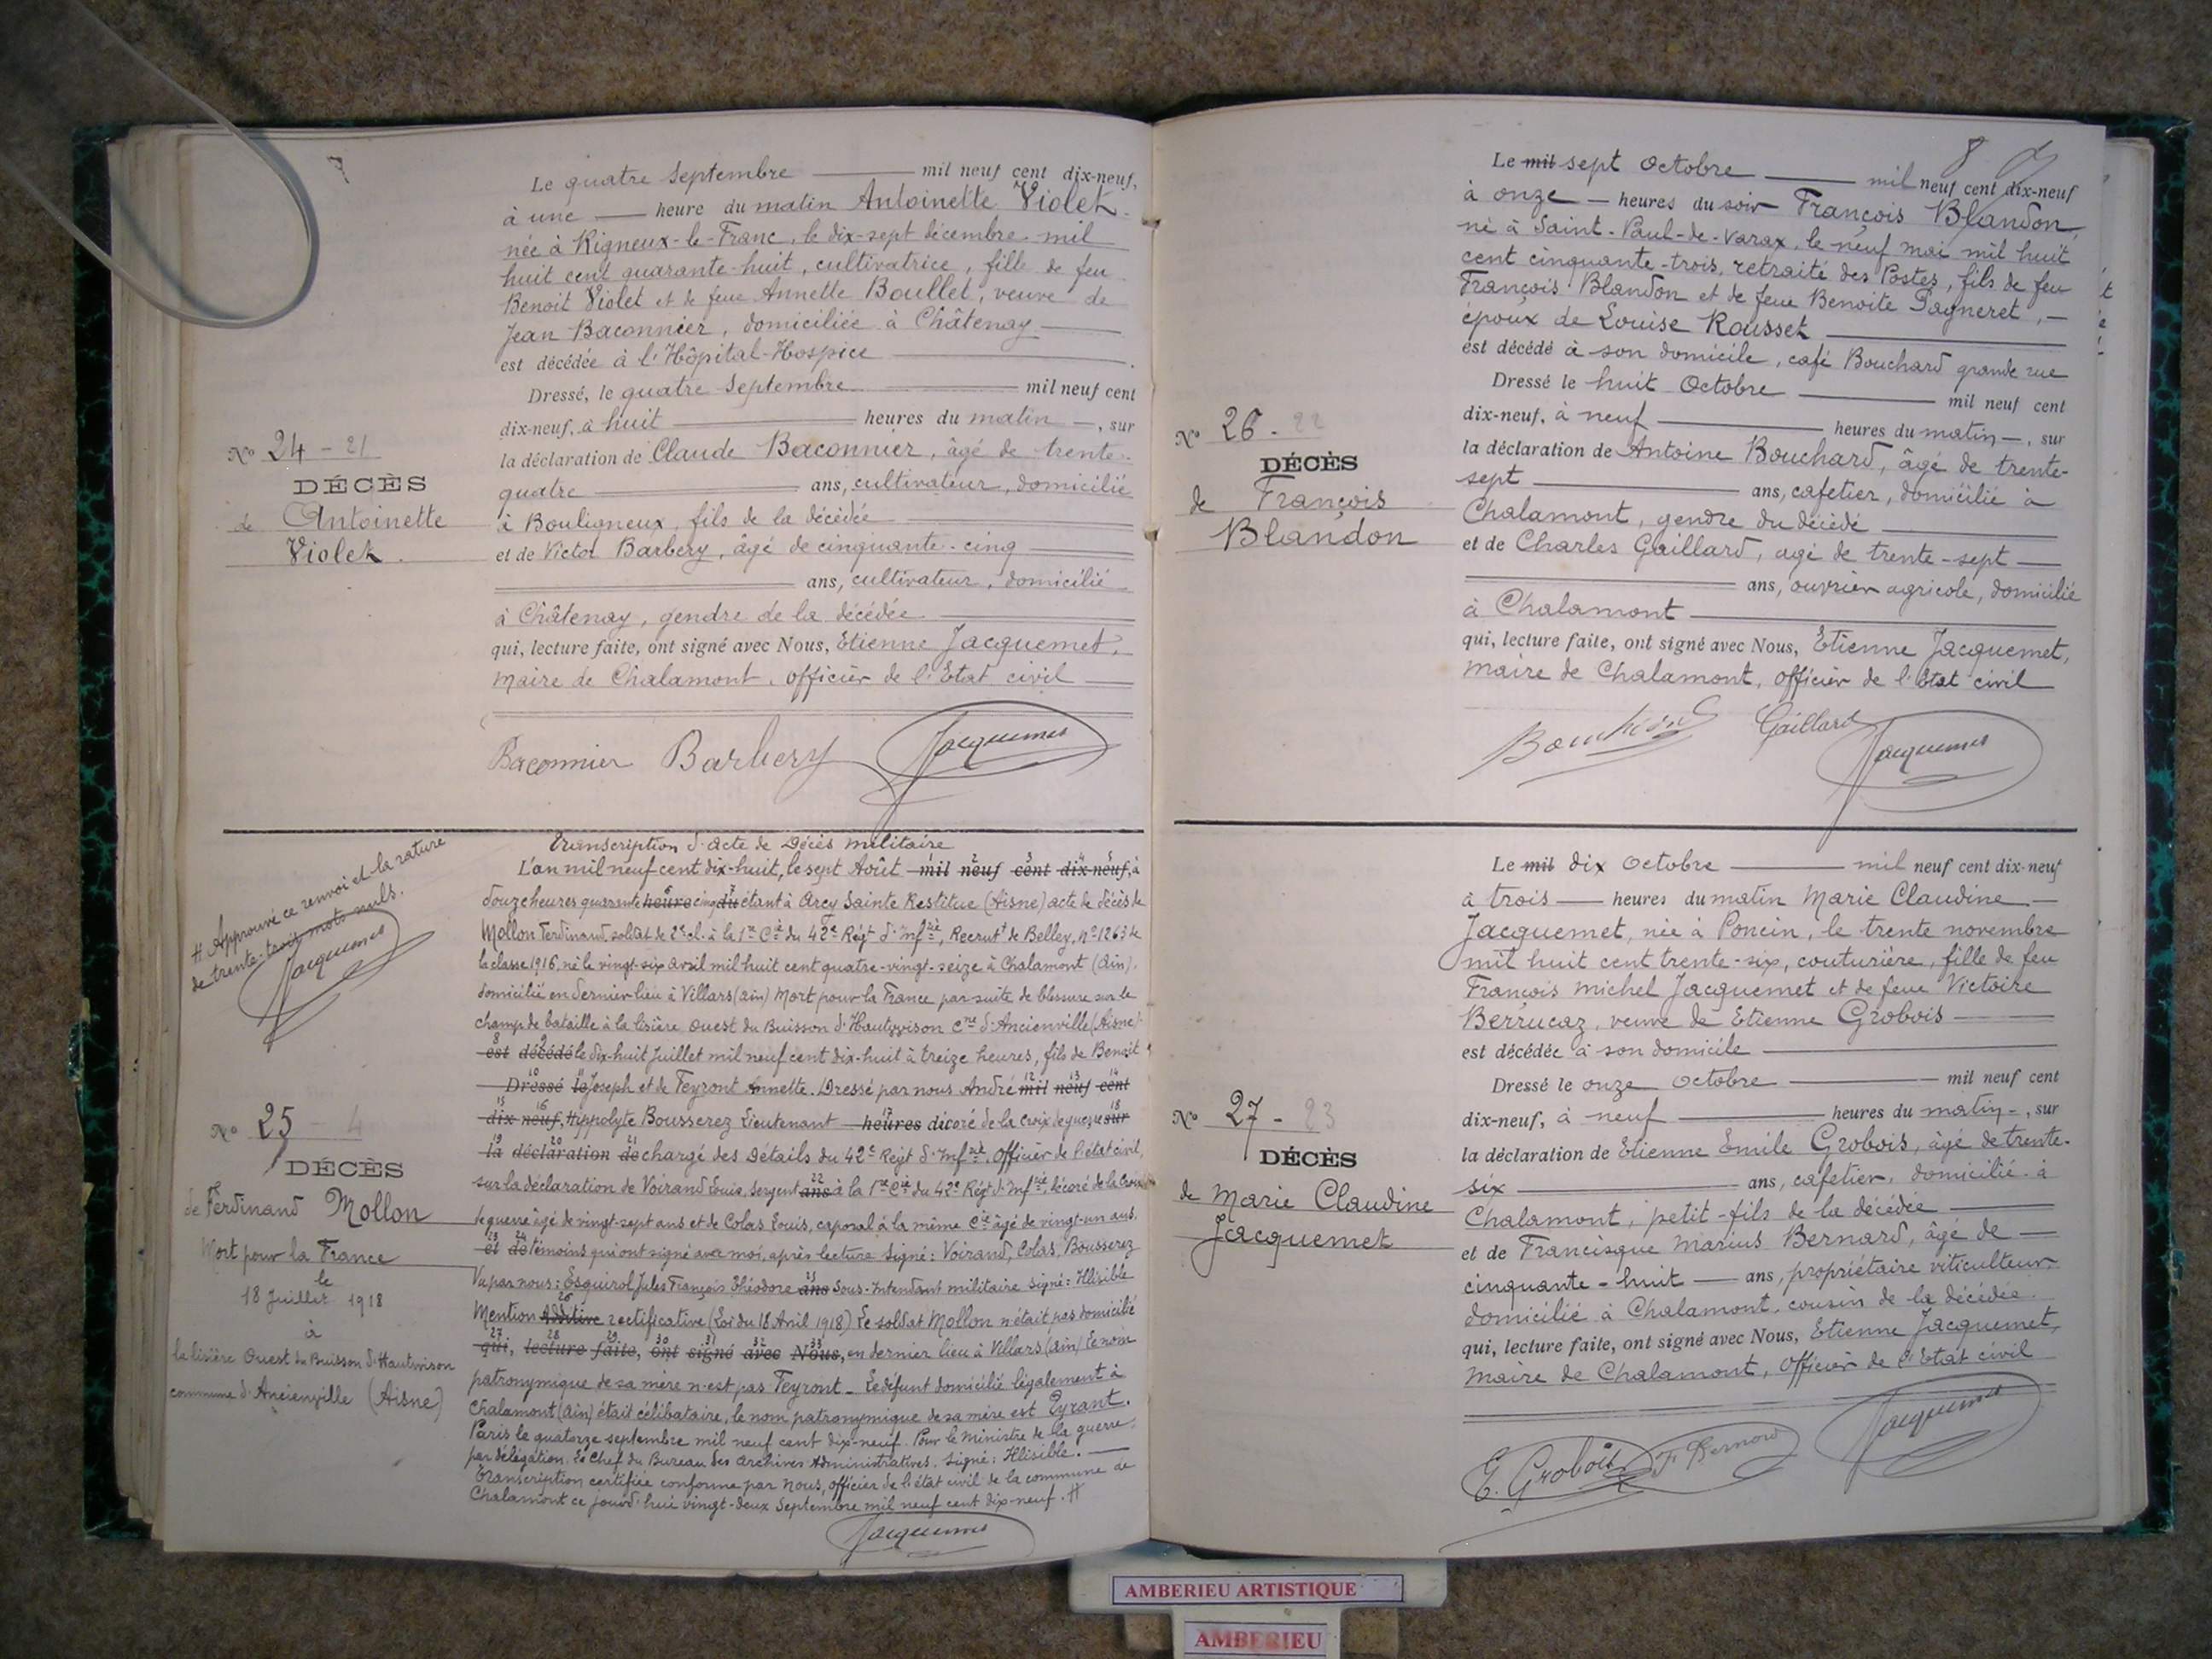 Le quatre Septembre mil neuf cent dix-neuf,
à une heure du matin Antoinette Violet
née à Rigneux-le-Franc, le dix-sept décembre mil
huit cent quarante-huit, cultivatrice, fille de feu
Benoit Violet et de feue Annette Boullet, veuve de
Jean Baconnier, domiciliée à Châtenay
est décédée à l'Hôpital-Hospice
Dressé, le quatre Septembre mil neuf cent
dix-neuf, à huit heures du matin, sur
la déclaration de Claude Baconnier, âgé de trente-
quatre ans, cultivateur, domicilié
à Bouligneux, fils de la décédée
et de Victor Barbery, âgé de cinquante-cinq
ans, cultivateur, domicilié
à Châtenay, gendre de la décédée
qui, lecture faite, ont signé avec Nous, Etienne Jacquemet,
Maire de Chalamont, officier de l'Etat civil
Baconnier Barbery Jacquemet
N° 24 - 21
DÉCÈS
de Antoinette
Violet
Transcription d'acte de Décès militaire
L'an mil neuf cent dix-huit, le sept Août mil neuf cent dix-neuf, à
douze heures quarante heure cinq du étant à Arcy Sainte Restitue (Aisne) acte de décès de
Mollon Ferdinand, soldat de 2e cl. à la 1re Cie du 42e Régt d'Infrie, Recrutt de Belley, n° 1263 de
la classe 1916, né le vingt-six avril mil huit cent quatre-vingt-seize à Chalamont (Ain).
domicilié en dernier lieu à Villars (Ain) Mort pour la France par suite de blessure sur le
champ de bataille à la lisière Ouest du Buisson d'Hautwison Cne d'Ancienville (Aisne)
est décédé le dix-huit Juillet mil neuf cent dix-huit à treize heures, fils de Benoit
Dressé le Joseph et de Feyront Annette. Dressé par nous André mil neuf cent
dix-neuf, Hippolyte Bousserez Lieutenant heures décoré de la Croix de guerre sur
la déclaration de chargé des Détails du 42e Régt d'Infrie, Officier de l'état civil,
sur la déclaration de Voirand Louis, sergent ans à la 1re Cie du 42e Régt d'Infrie, décoré de la Croix
de guerre âgé de vingt-sept ans et de Colas Louis, caporal à la même Cie âgé de vingt-un ans.
et de témoins qui ont signé avec moi, après lecture Signé : Voirand, Colas, Bousserez
Vu par nous : Esquirol Jules François Théodore ans Sous-Intendant militaire Signé : Illisible
Mention Additive rectificative (Loi du 18 Avril 1918) Le soldat Mollon n'était pas domicilié
qui, lecture faite, ont signé avec Nous, en dernier lieu à Villars (Ain) Le nom
patronymique de sa mère n'est pas Feyront - Le défunt domicilié légalement à
Chalamont (Ain) était célibataire, le nom patronymique de sa mère est Eyrant.
Paris le quatorze septembre mil neuf cent dix-neuf. Pour le Ministre de la guerre
par délégation. Le Chef du Bureau des Archives Administratives. Signé : Illisible.
Transcription certifiée conforme par Nous, officier de l'état civil de la commune de
Chalamont ce jourd'hui vingt-deux Septembre mil neuf cent dix-neuf. #
Jacquemet
# Approuvé ce renvoi et la rature
de trente-trois mots nuls.
Jacquemet
N° 25 - 4
DÉCÈS
de Ferdinand Mollon
Mort pour la France
le
18 Juillet 1918
à
la lisière Ouest du Buisson d'Hautwison
commune d'Ancienville (Aisne)
8
Le mil sept Octobre mil neuf cent dix-neuf
à onze heures du soir François Blandon,
né à Saint-Paul-de-Varax, le neuf mai mil huit
cent cinquante-trois, retraité des Postes, fils de feu
François Blandon et de feue Benoite Pagneret,
époux de Louise Rousset
est décédé à son domicile, café Bouchard grande rue
Dressé le huit Octobre mil neuf cent
dix-neuf, à neuf heures du matin, sur
la déclaration de Antoine Bouchard, âgé de trente-
sept ans, cafetier, domicilié à
Chalamont, gendre du décédé
et de Charles Gaillard, âgé de trente-sept
ans, ouvrier agricole, domicilié
à Chalamont
qui, lecture faite, ont signé avec Nous, Etienne Jacquemet,
Maire de Chalamont, officier de l'Etat civil
Bouchard Gaillard Jacquemet
N° 26 - 22
DÉCÈS
de François
Blandon
Le mil dix Octobre mil neuf cent dix-neuf
à trois heures du matin Marie Claudine
Jacquemet, née à Poncin, le trente novembre
mil huit cent trente-six, couturière, fille de feu
François Michel Jacquemet et de feue Victoire
Berrucaz, veuve de Etienne Grobois
est décédée à son domicile
Dressé le onze Octobre mil neuf cent
dix-neuf, à neuf heures du matin, sur
la déclaration de Etienne Emile Grobois, âgé de trente-
six ans, cafetier, domicilié à
Chalamont, petit-fils de la décédée
et de Francisque Marius Bernard, âgé de
cinquante-huit ans, propriétaire viticulteur
domicilié à Chalamont, cousin de la décédée.
qui, lecture faite, ont signé avec Nous, Etienne Jacquemet,
Maire de Chalamont, Officier de l'Etat civil
E. Grobois F. Bernard Jacquemet
N° 27 - 23
DÉCÈS
de Marie Claudine
Jacquemet
AMBERIEU ARTISTIQUE
AMBERIEU